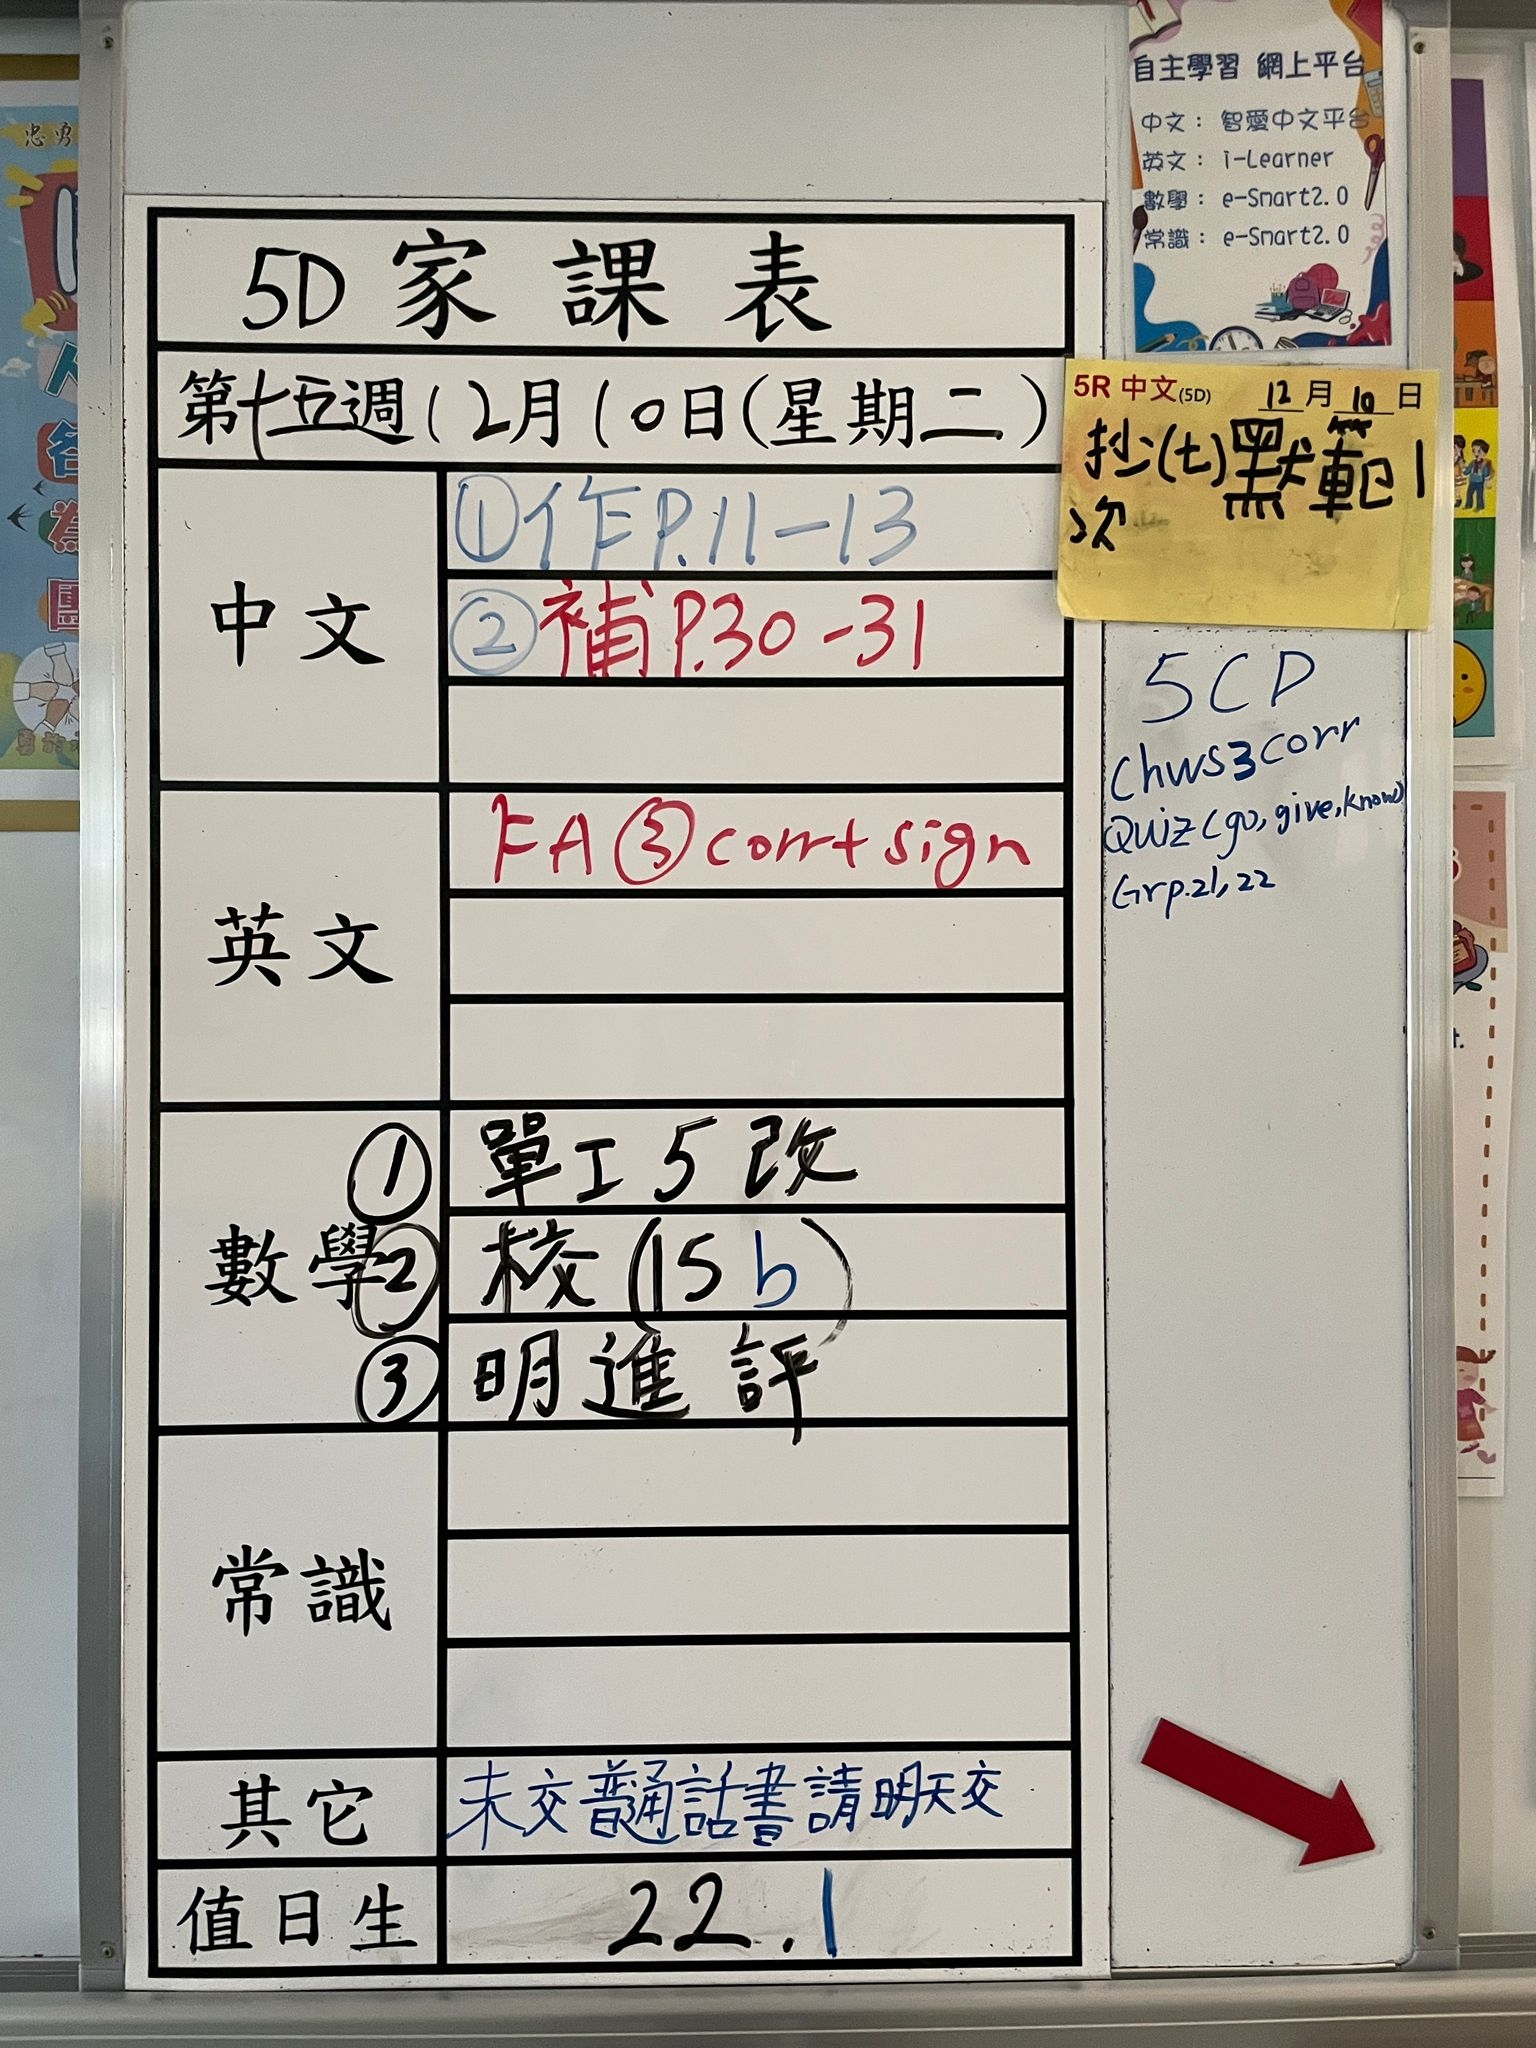 自主學習 網上平台
中文： 智愛中文平台
英文： i-Learner
數學： e-Smart2.0
常識： e-Smart2.0
忠勇
5D 家課表
第十五週 12月10日(星期二)
5R 中文(5D) 12月10日
抄(七)默範1
次
中文
①作P.11-13
②補P.30-31
5CD
Chws3corr
Quiz(go, give, know)
Grp.21,22
英文
FA③corr+sign
數學
① 單工5改
② 校(15b)
③ 明進評
常識
其它
未交普通話書請明天交
值日生
22.1